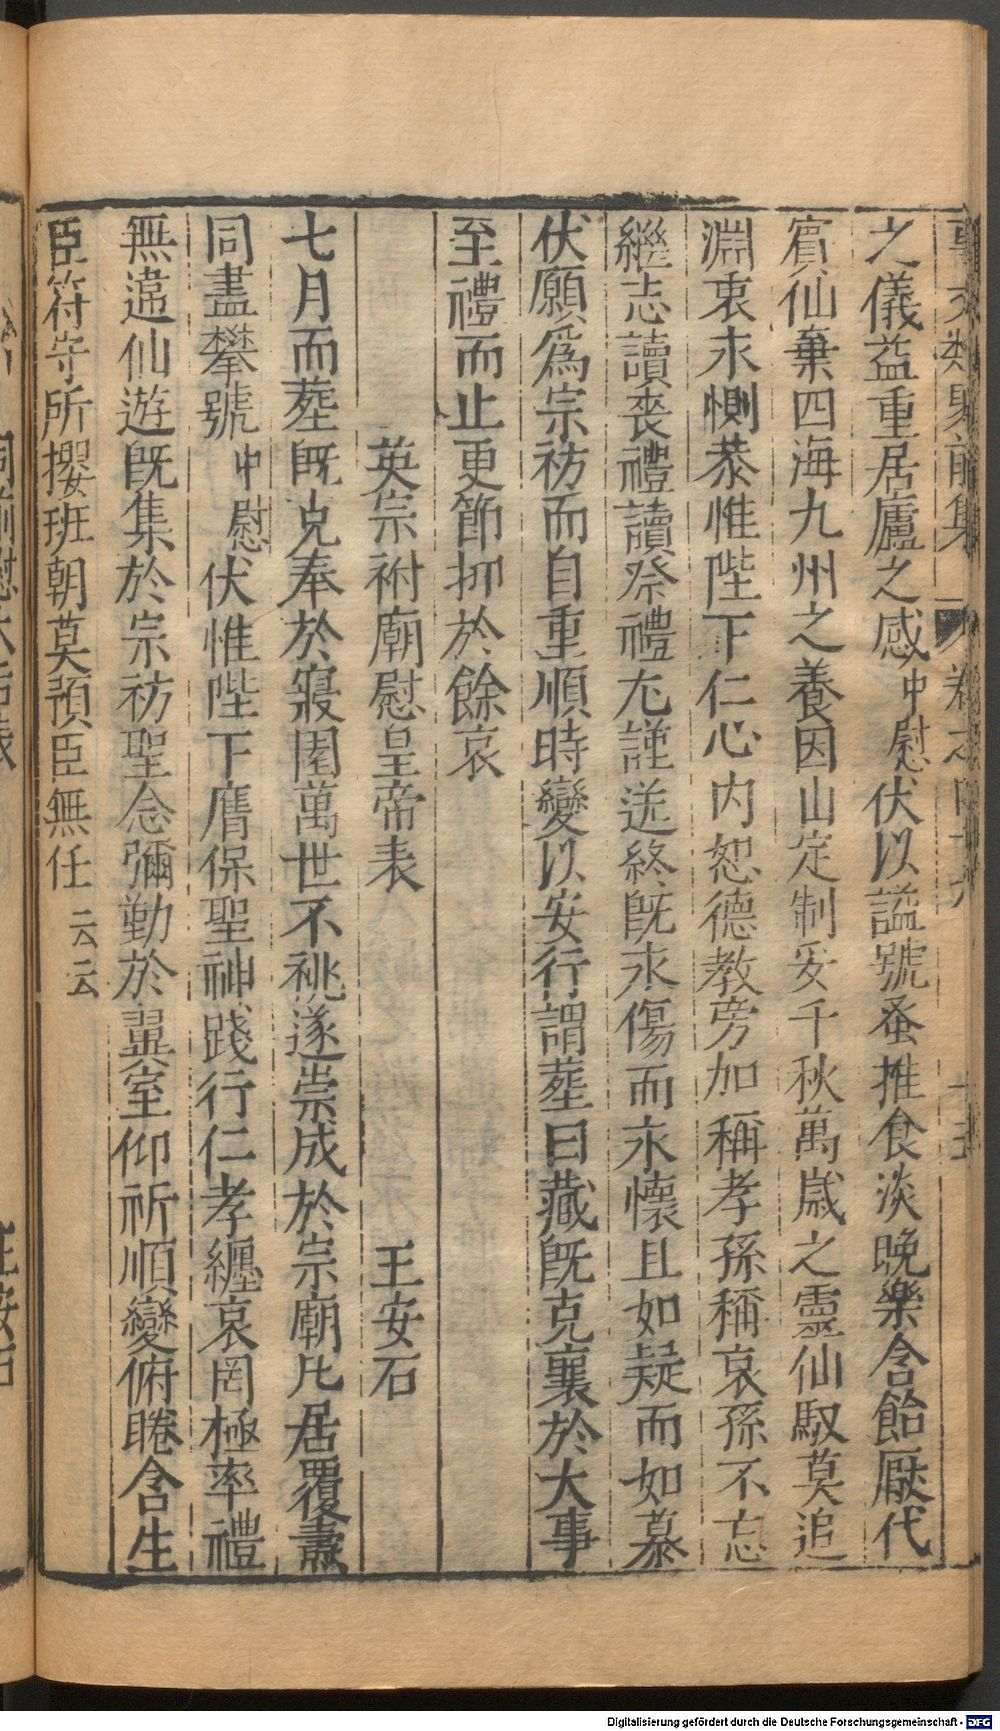 之儀益重居廬之感中慰伏以謚號蚤推食淡晚樂含飴厭代
賓仙棄四海九州之養因山定制安千秋萬歲之靈仙馭莫追
淵衷永惻恭惟陛下仁心内恕德教旁加稱孝孫稱哀孫不忘
繼志讀喪禮讀祭禮尤謹送終既永傷而永懷且如疑而如慕
伏願爲宗祊而自重順時變以安行謂塟曰藏既克襄於大事
至禮而止更節抑於餘哀
英宗祔廟慰皇帝表 王安石
七月而塟既克奉於寢園萬世不祧遂崇成於宗廟凡居覆燾
同盡攀號中慰伏惟陛下膺保聖神踐行仁孝纏哀罔極率禮
無違仙遊既集於宗祊聖念彌勤於翼室仰祈順變俯睠含生
臣符守所攖班朝莫預臣無任云云
Digitalisierung gefördert durch die Deutsche Forschungsgemeinschaft - DFG